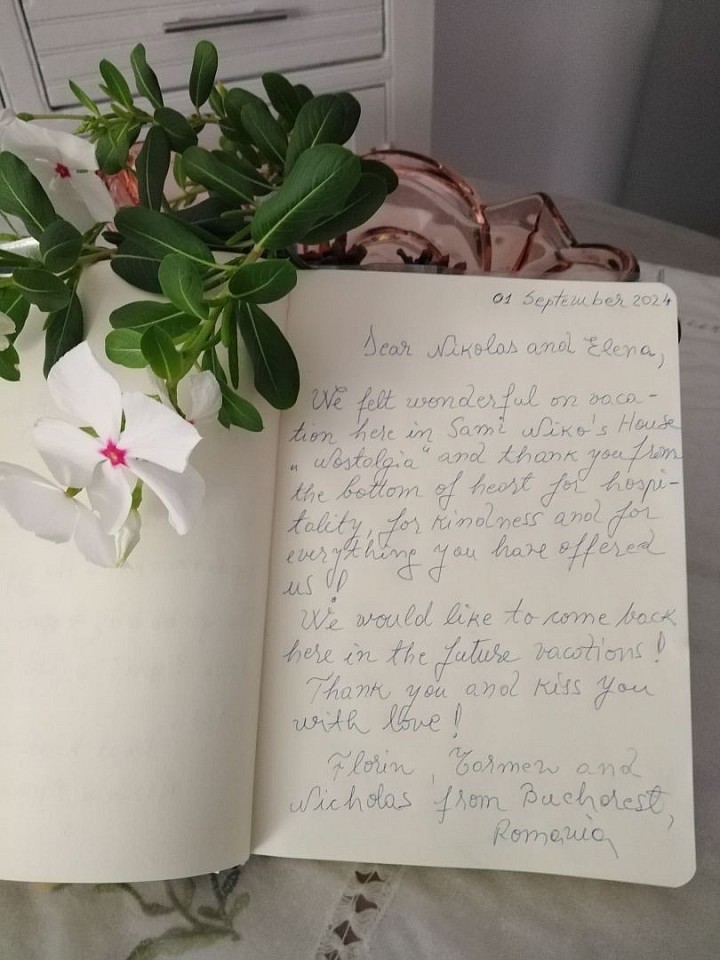 01 September 2024
Dear Nikolas and Elena,
We felt wonderful on vaca-
tion here in Sami Niko's House
„Nostalgia“ and thank you from
the bottom of heart for hospi-
tality, for kindness and for
everything you have offered
us!
We would like to come back
here in the future vacations!
Thank you and kiss you
with love!
Florin, Carmen and
Nicholas from Bucharest,
Romania